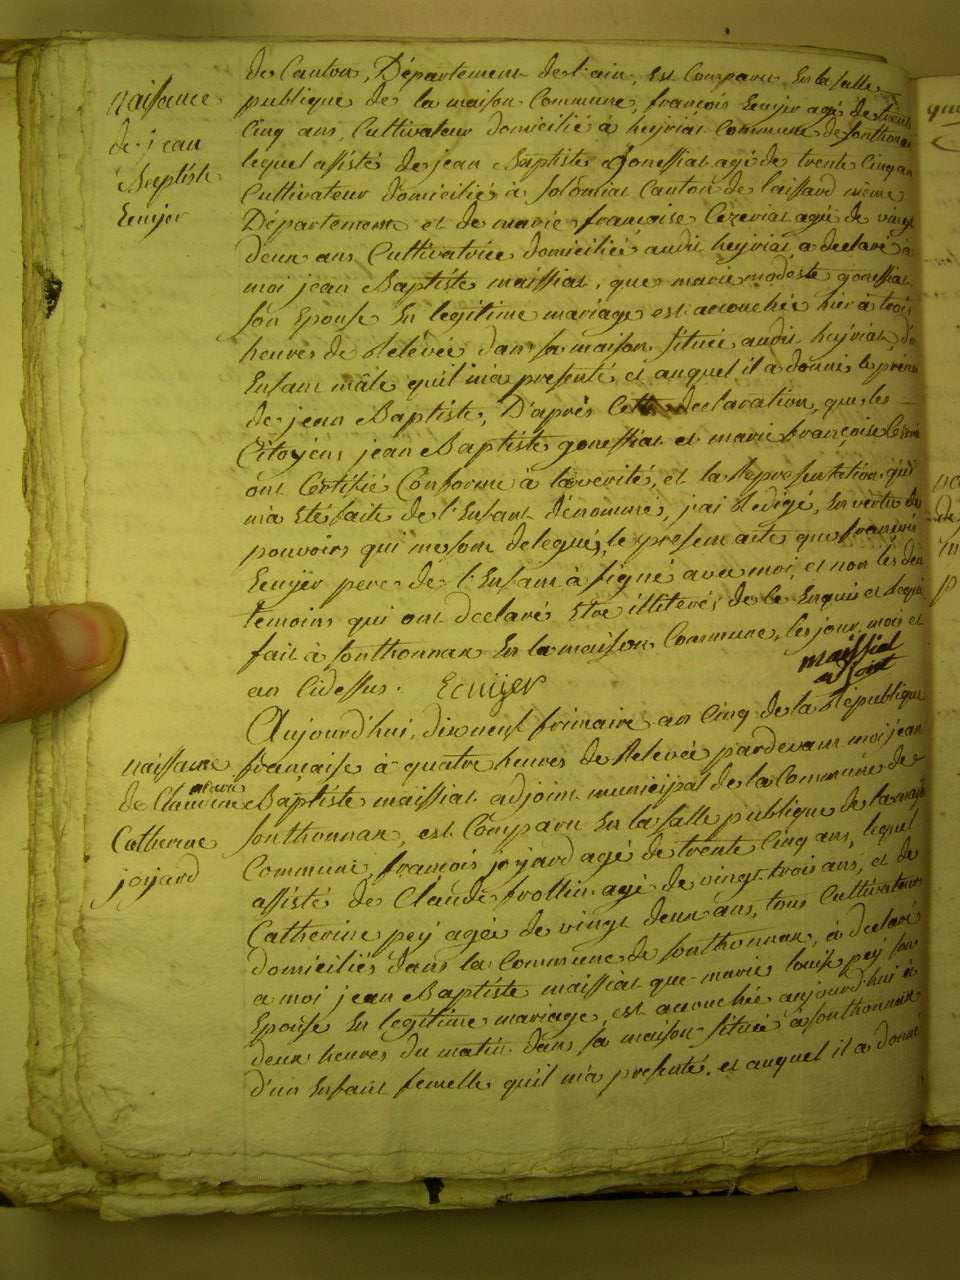 de Canton, Département de l'ain, est Comparu En la salle
publique de la maison Commune, françois Ecuyer agé de trente
Cinq ans, Cultivateur domicilié à heyriat Commune de sonthonnax
lequel assisté de jean Baptiste Gonessiat agé de trente Cinq an
Cultivateur domicilié à solomiat Canton de laissard meme
Département et de marie françoise Cezeriat agée de vingt
deux ans Cultivatrice domiciliée audit heyriat a declaré à
moi jean Baptiste maissiat, que marie modeste gonessiat
son Epouse En legitime mariage est accouchée hier à trois
heures de Relevée dans sa maison située audit heyriat, d'un
Enfant mâle quil m'a presenté et auquel il a donné le prénom
de jean Baptiste, D'après Cette declaration, que les
Citoyens jean Baptiste gonessiat et marie françoise Cezeriat
ont Certifié Conforme à la verité, et la Représentation qui
m'a Eté faite de l'Enfant dénommé, j'ai Redigé, En vertu des
pouvoirs qui me sont delegués, le présent acte que françois
Ecuyer pere de l'Enfant à signé avec moi, et non les deux
temoins qui ont declaré Etre illiterés de ce Enquis et Requis
fait à sonthonnax En la maison Commune, les jour, mois et
an Cidessus. Ecuijer maissiat
adjoint
naissance
de jean
Baptiste
Ecuyer
Aujourd'hui, dixneuf frimaire an Cinq de la République
française à quatre heures de Relevée pardevant moi jean
Baptiste maissiat adjoint municipal de la Commune de
sonthonnax, est Comparu En la salle publique de la maison
Commune, françois joyard agé de trente Cinq ans, lequel
assisté de Claude frottin agé de vingt-trois ans, et de
Catherine pey agée de vingt deux ans, tous Cultivateurs
domiciliés dans la Commune de sonthonnax, à declaré
a moi jean Baptiste maissiat que marie louise pey son
Epouse En legitime mariage, est accouchée aujourd'hui à
deux heures du matin dans sa maison située à sonthonnax
d'un Enfant femelle quil m'a presenté, et auquel il a donné
naissance
de Claudine marie
Catherine
joyard